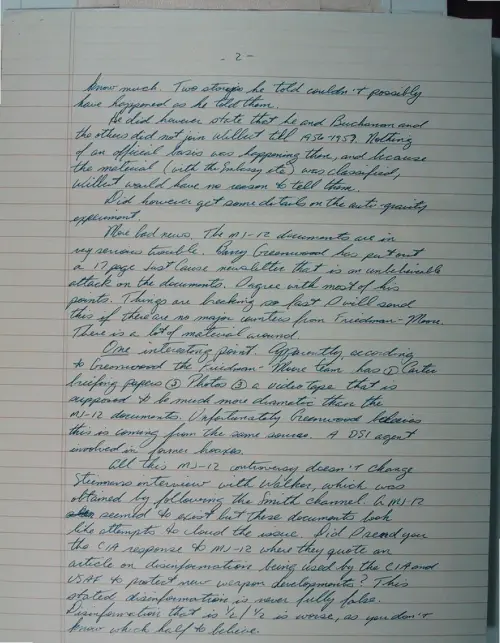 - 2 -
know much. Two stories he told couldn't possibly
have happened as he told them.
He did however state that he and Buchanan and
the others did not join Wilbert till 1956-1957. Nothing
of an official basis was happening then, and because
the material (with the Embassy etc) was classified,
Wilbert would have no reason to tell them.
Did however get some details on the anti-gravity
experiment.
More bad news. The MJ-12 documents are in
very serious trouble. Barry Greenwood has put out
a 17 page Just Cause newsletter that is an unbelievable
attack on the documents. I agree with most of his
points. Things are breaking so fast I will send
this if there are no major counters from Friedman-Moore.
There is a lot of material around.
One interesting point. Apparently according
to Greenwood the Friedman-Moore team has ① Carter
briefing papers ② Photos ③ a video tape that is
supposed to be much more dramatic than the
MJ-12 documents. Unfortunately Greenwood believes
this is coming from the same source. A OSI agent
involved in former hoaxes.
All this MJ-12 controversy doesn't change
Steinmans interview with Walker, which was
obtained by following the Smith channel. A MJ-12
seemed to exist but these documents look
like attempts to cloud the issue. Did I send you
the CIA response to MJ-12 where they quote an
article on disinformation being used by the CIA and
USAF to protect new weapon developments? This
stated, disinformation is never fully false.
Disinformation that is 1/2 / 1/2 is worse, as you don't
know which half to believe.